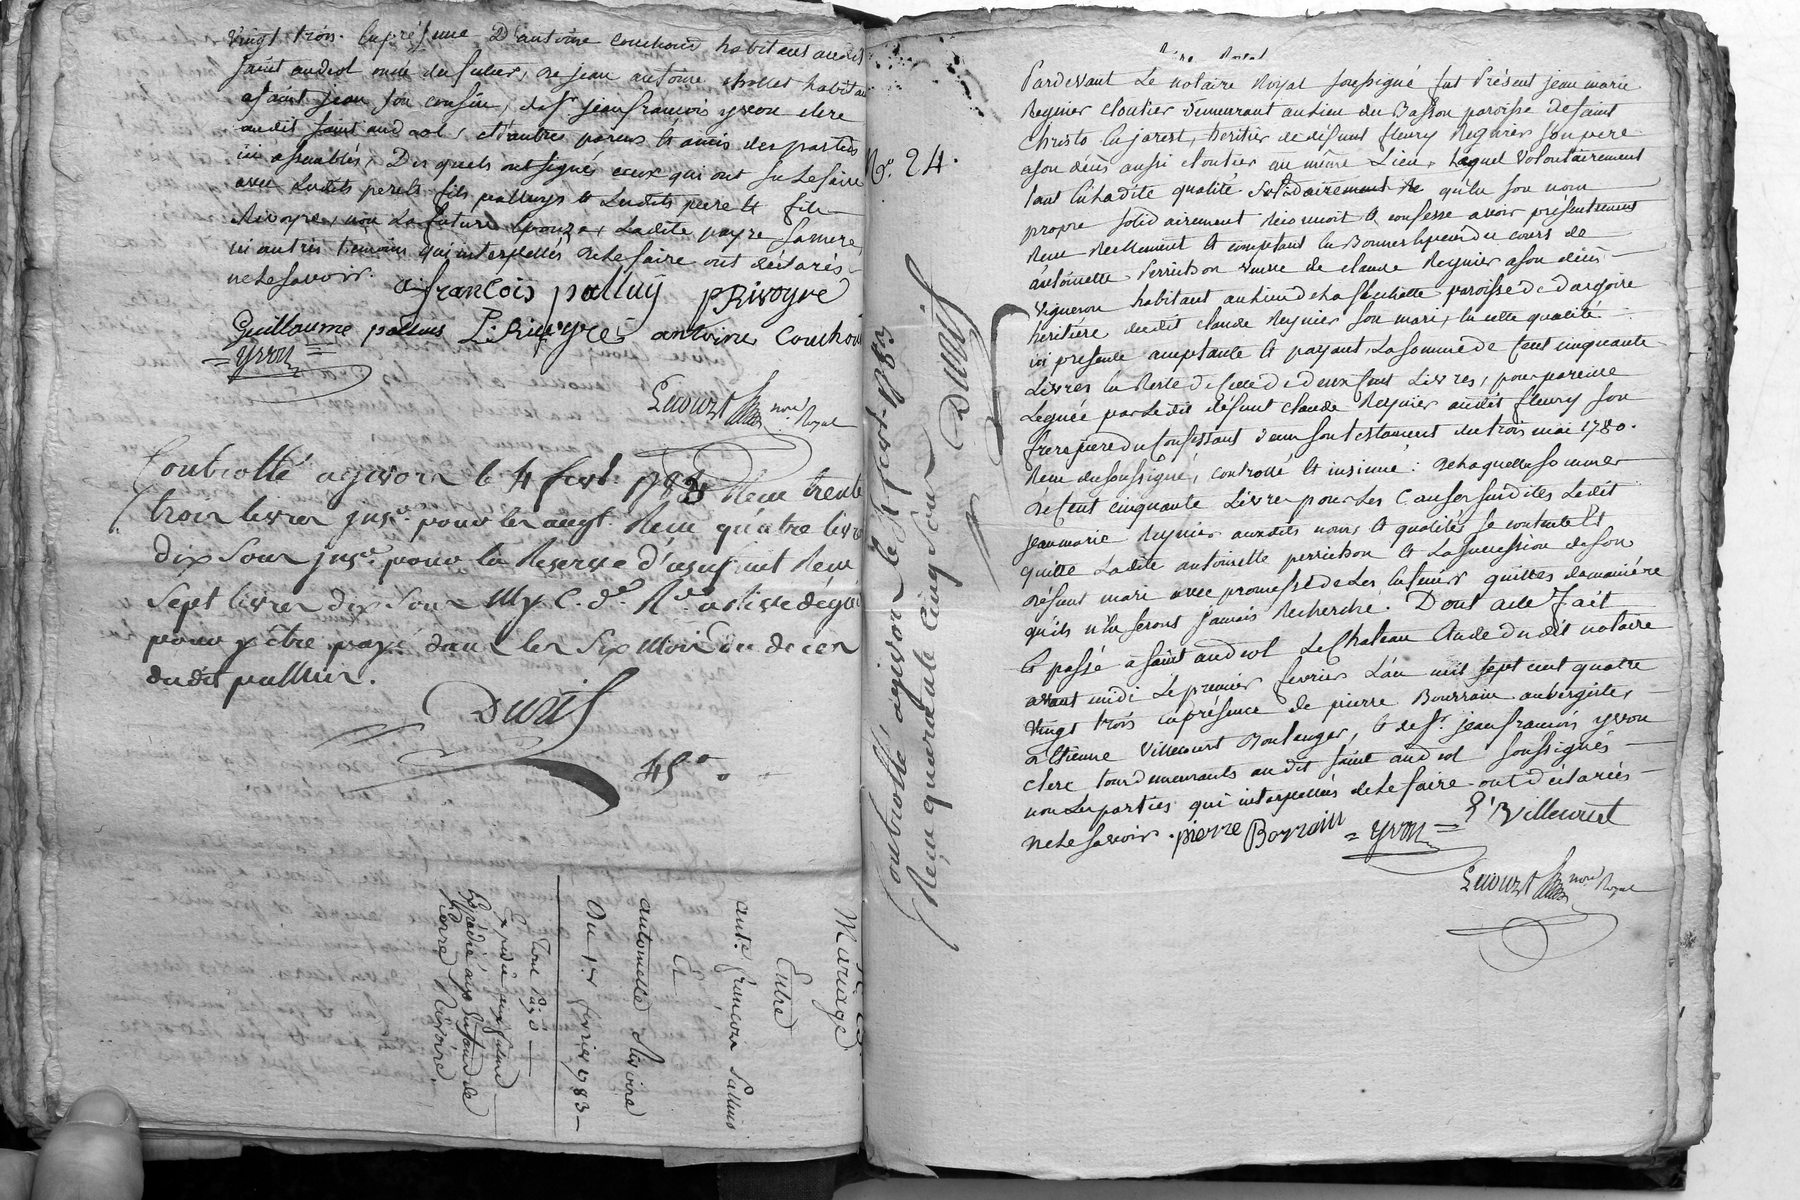 vingt trois. En présence D'antoine couchoud habitans audit
saint andeol oncle du futur, de jean antoine chollet habitant
a saint jean son cousin, du sr jean francois yvon clerc
audit saint andeol, et d'autres parens et amis des parties
ici assemblés, Des quels ont signés ceux qui ont su le faire
avec lesdits pere et fils palluys et lesdits pere et fils
Rivoyre, non La future Epouze, Ladite payre sa mere
ni autres temoins qui interpellés de le faire ont déclarés
ne le savoir.
françois palluy p Rivoyre
Guillaume palluis P. Rivoyre antoine Couchoud
= yvon =
noire Royal
Controllé a givors le 4 fevr. 1783 Reçu trente
trois livres insé. pour les augt. Reçu quatre livres
dix sous insé. pour la Reserve d'usufruit Reçu
sept livres dix sous
pour y être payé dans les six mois du deces
dudit palluis.
Duvis
45# "
Mariage
Entre
ant. françois Palluis
Et
antoinette Rivoire
Du 1er fevrier 1783 –
Expedié aux futurs
Expedié aux
Pierre Rivoire.
No. 24.
Controllé a givors le 4 fevr. 1783
Reçu quarante cinq sous
Duvis
Pardevant Le notaire Royal soussigné fut Présent jean marie
Reynier cloutier demeurant au lieu du Basson paroisse de saint
Christo en jarest, heritier de défunt fleury Reynier son pere
a son décès aussi cloutier au même Lieu, Lequel volontairement
tant en ladite qualité solidairement qu'en son nom
propre solidairement Reconnoit et confesse avoir présentement
Reçu Reellement et comptant en Bonnes Especes du cours de
antoinette Perrichon veuve de claude Reynier a son décès
vigneron habitant au lieu de la paroisse de dargoire
heritiere dudit claude Reynier son mari, en cette qualité
ici presente acceptante et payant, La somme de cent cinquante
Livres en Reste de celle de deux cent Livres, pour pareille
Leguée par Ledit défunt claude Reynier audit fleury son
frere pere du Confessant dans son testament du trois mai 1780.
Reçu du soussigné, controllé et insinué : De laquelle somme
de cent cinquante Livres pour Les Causes susdites Ledit
jean marie Reynier auxdits noms et qualités se contente Et
quitte Ladite antoinette perrichon et La succession de son
défunt mari avec promesse de Les En tenir quittes de maniére
qu'ils n'En seront jamais Recherché. Dont acte Fait
Et passé a saint andeol Le Chateau Etude dudit notaire
avant midi Le premier fevrier L'an mil sept cent quatre
vingt trois En présence de pierre Bourrain aubergiste,
d'Etienne Villecourt Boulanger, et de sr. jean francois yvon
clerc tous demeurants audit saint andeol soussignés
non Les parties qui interpellées de Le faire ont déclarées
ne Le savoir. pierre Borrain = yvon = E Villecourt
noire Royal